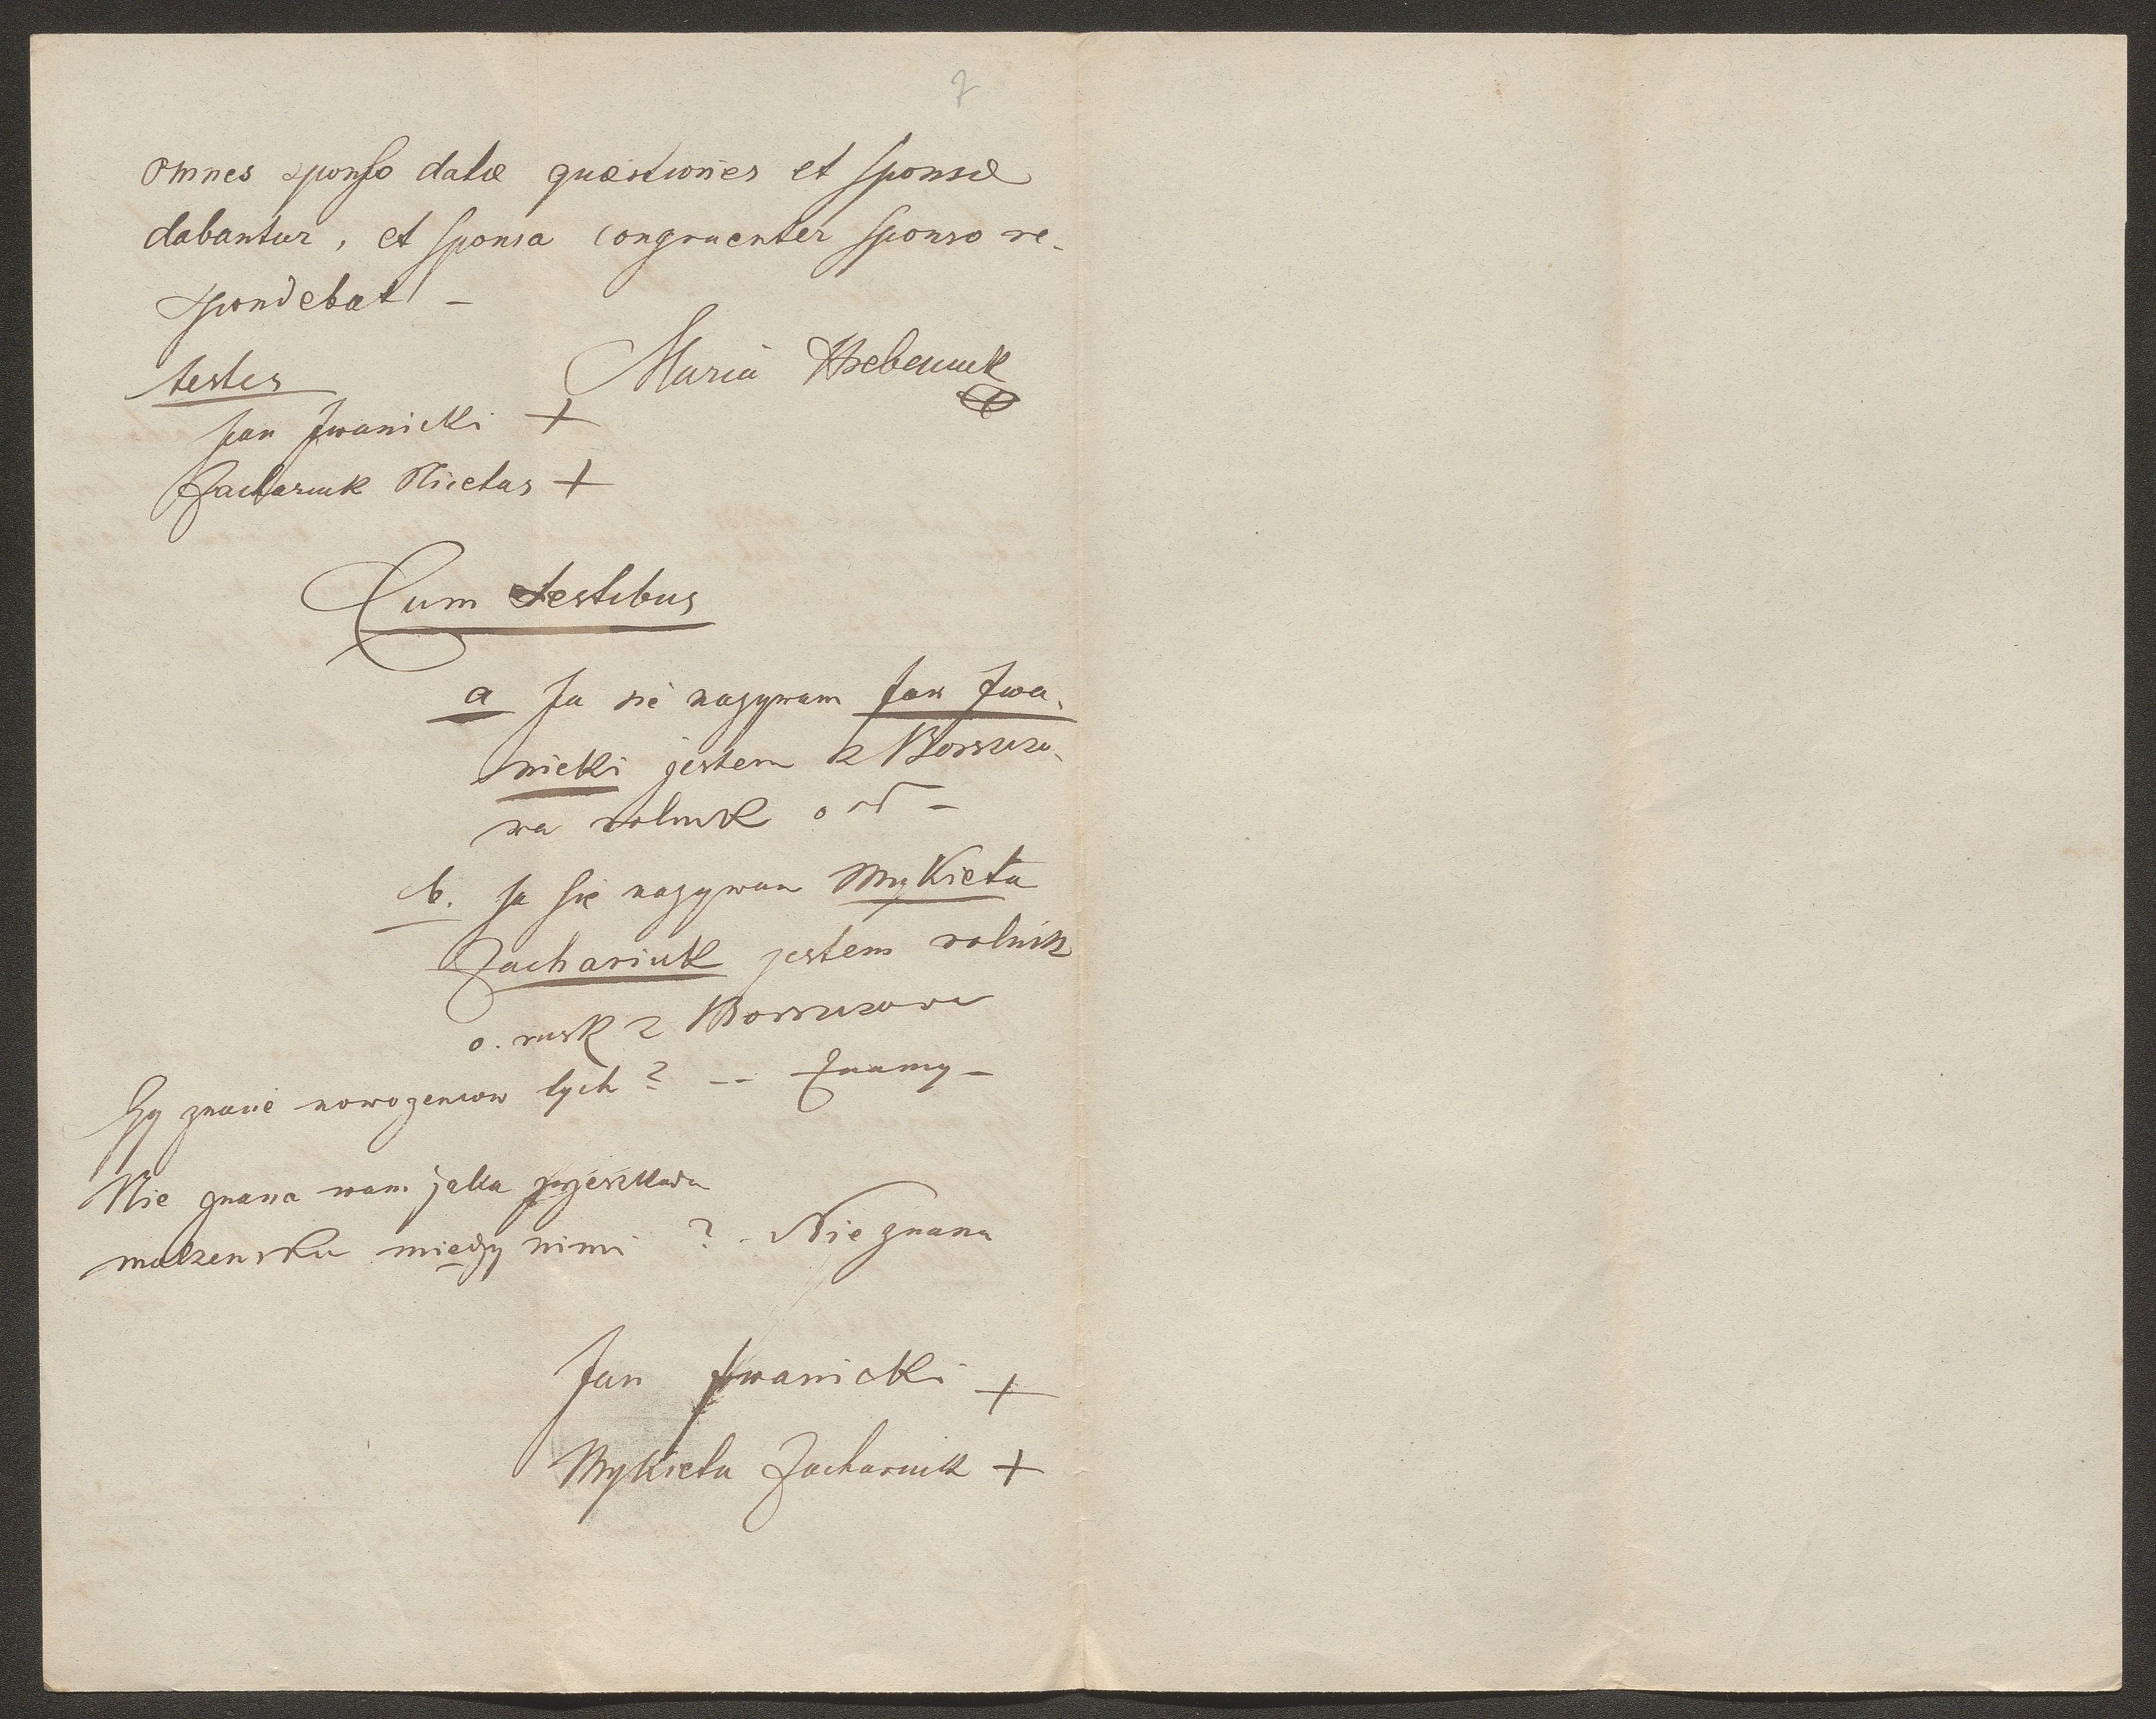 7
omnes sponso datæ quæstiones et sponsæ
dabantur, et sponsa congruenter sponso re-
spondebat –
testes
Maria Hrebeniuk
Jan Iwanicki +
Zachariuk Nicetas +
Cum testibus
a Ja się nazywam Jan Iwa-
nicki jestem z Borszczo-
wa rolnik
b. Ja się nazywam Mykieta
Zachariuk jestem rolnik
o. rusk z Borszczowa
Czy znacie nowożencow tych? -- Znamy –
Nie znana wam jaka przeszkoda
malzenska między nimi? - Nie znana
Jan Iwanicki +
Mykieta Zachariuk +